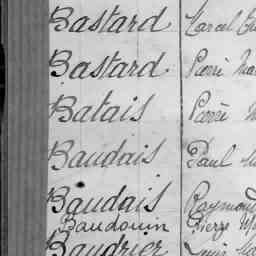 Bastard Marcel
Bastard Pierre
Batais Pierre
Baudais Paul
Baudais Raymond
Baudouin Pierre
Baudrier Louis